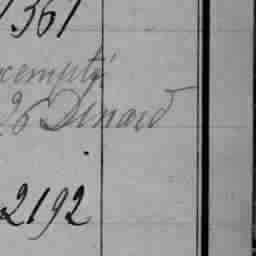 1361
exempté
26 Denard
2192